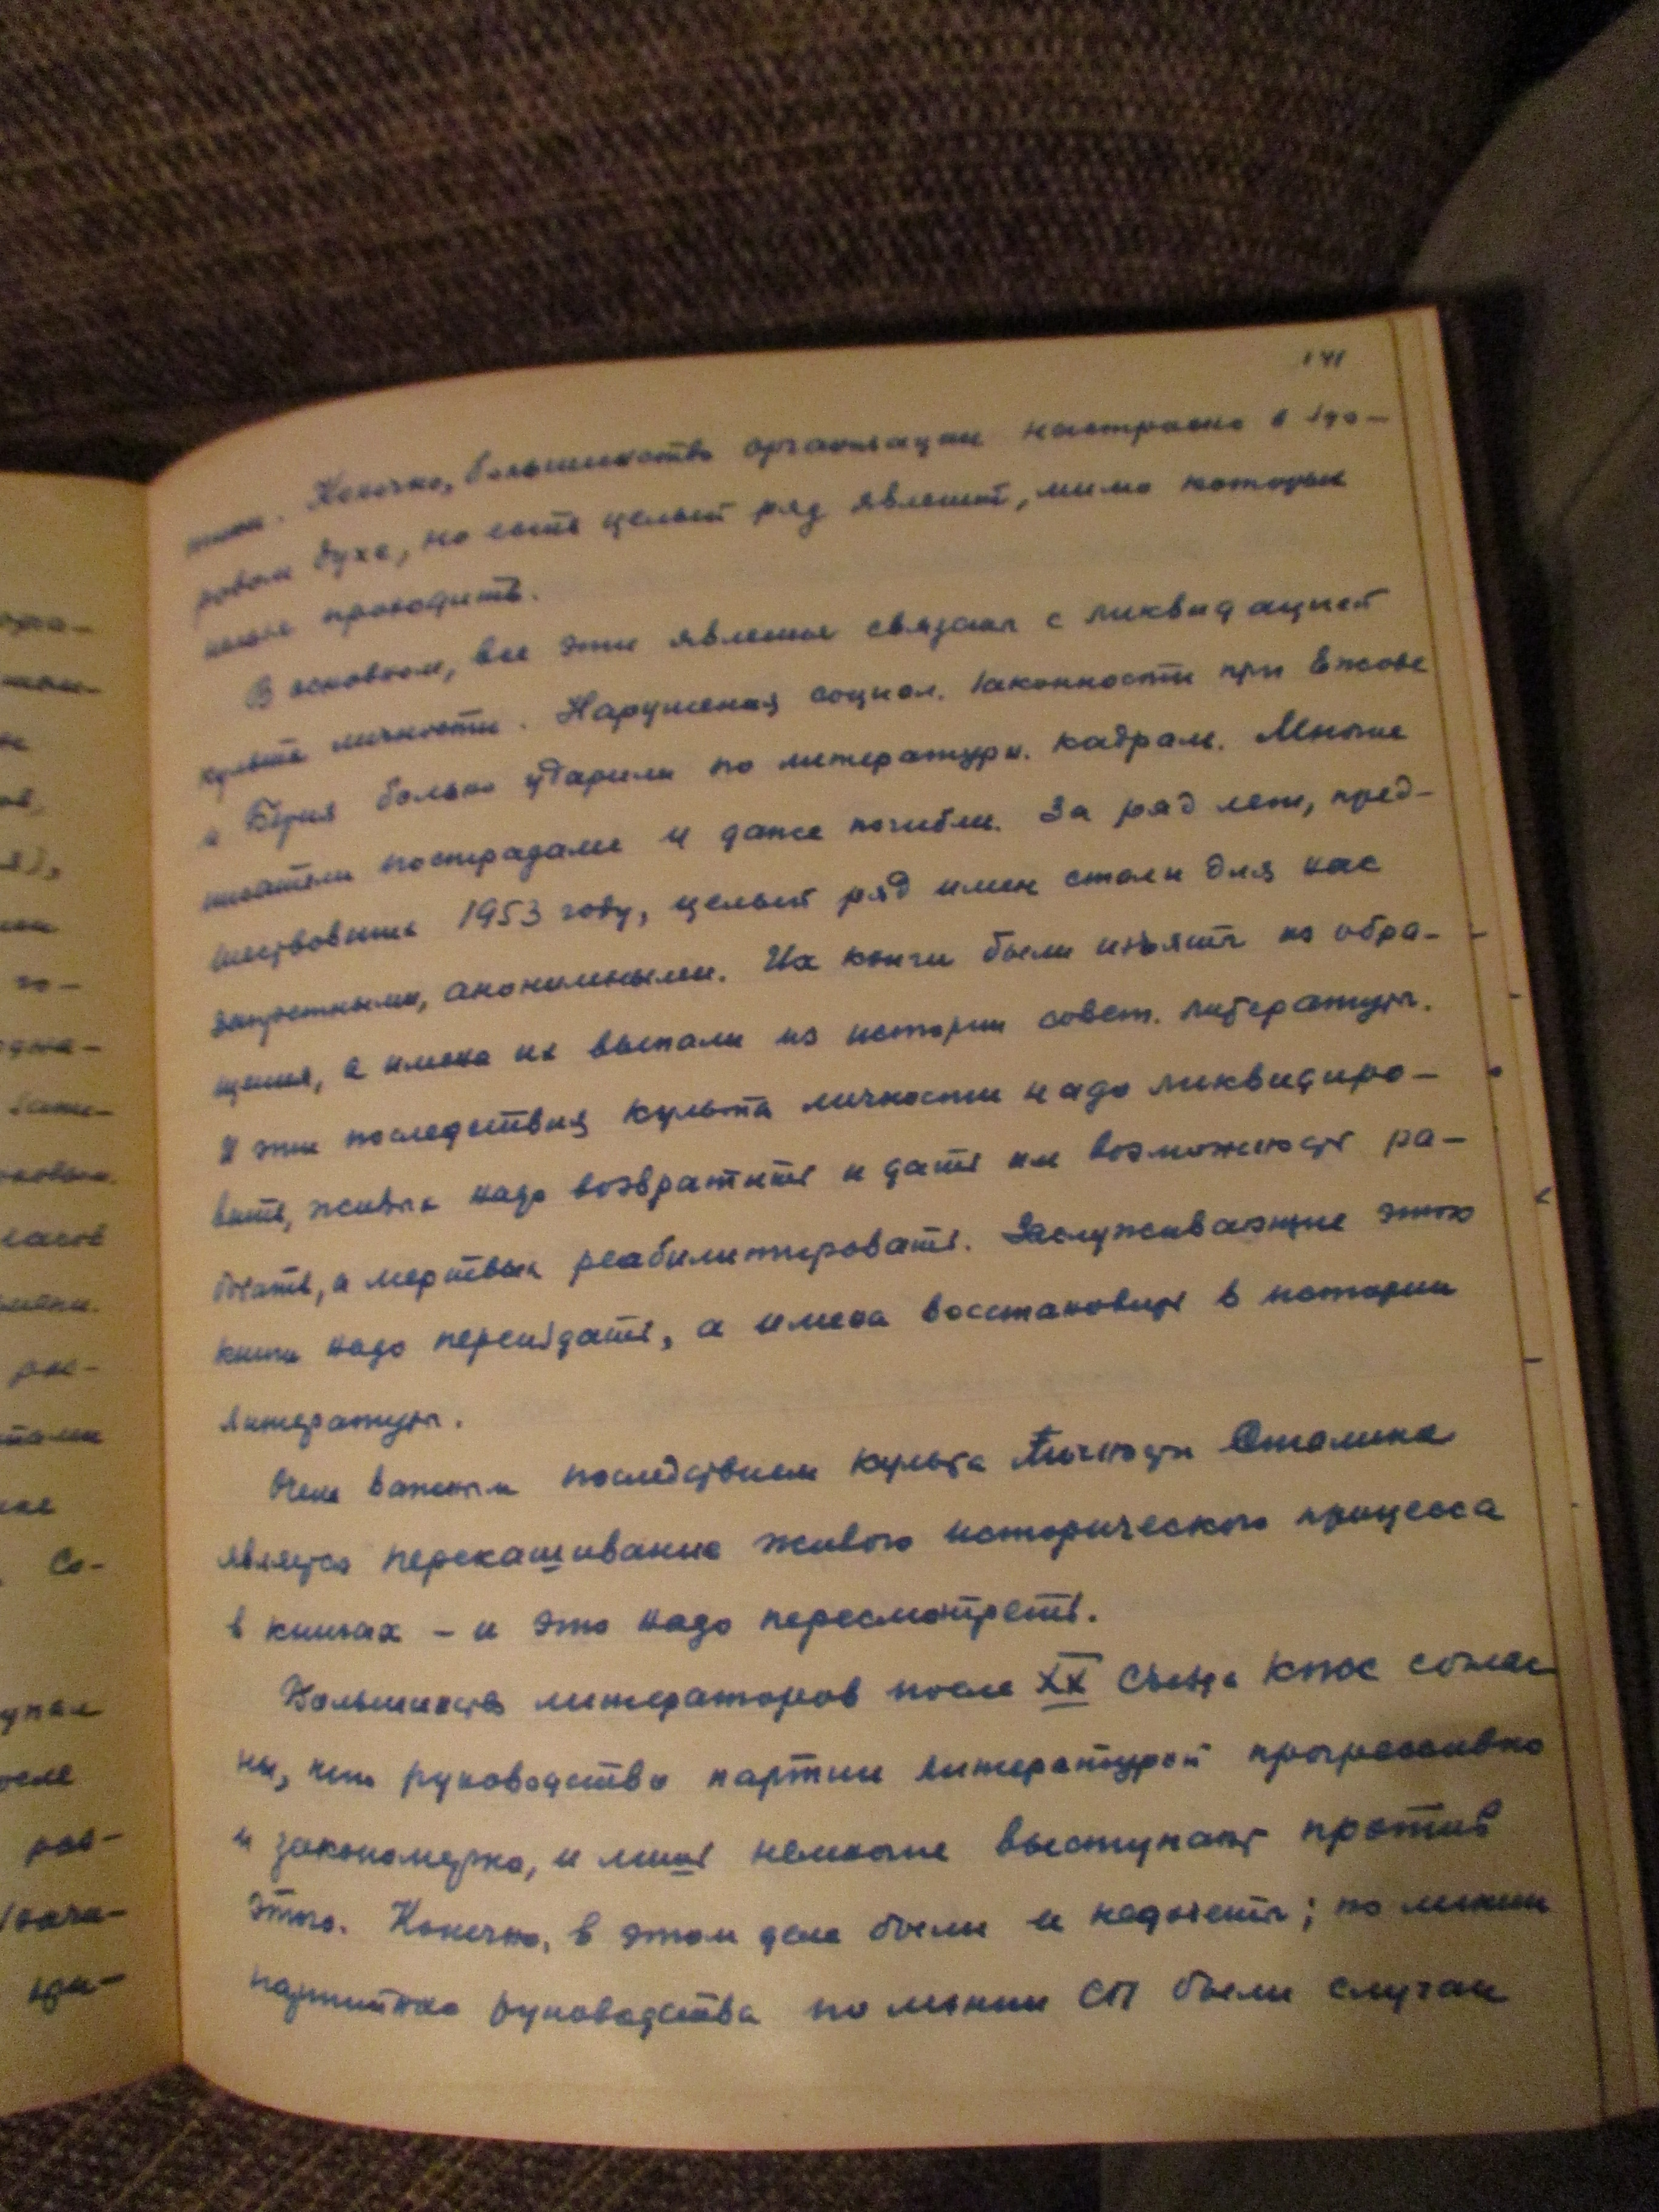 141
Конечно, большинство организации настроено в здо-
ровом духе, но есть целый ряд явлений, мимо которых
нельзя проходить.
В основном, все эти явления связаны с ликвидацией
культа личности. Нарушения социал. законности при Ежове
и Берия больно ударили по литературн. кадрам. Многие
писатели пострадали и даже погибли. За ряд лет, пред-
шествовавших 1953 году, целый ряд имен стали для нас
запретными, анонимными. Их книги были изъяты из обра-
щения, а имена их выпали из истории совет. литературы.
И эти последствия культа личности надо ликвидиро-
вать, живых надо возвратить и дать им возможность ра-
ботать, а мертвых реабилитировать. Заслуживающие этого
книги надо переиздать, а имена восстановить в истории
литературы.
Очень важным последствием культа личности Сталина
является перекашивание живого исторического процесса
в книгах – и это надо пересмотреть.
Большинство литераторов после XX Съезда КПСС соглас-
ны, что руководство партии литературой прогрессивно
и закономерно, и лишь немногие выступают против
этого. Конечно, в этом деле были и недочеты; по линии
партийного руководства по линии СП были случаи